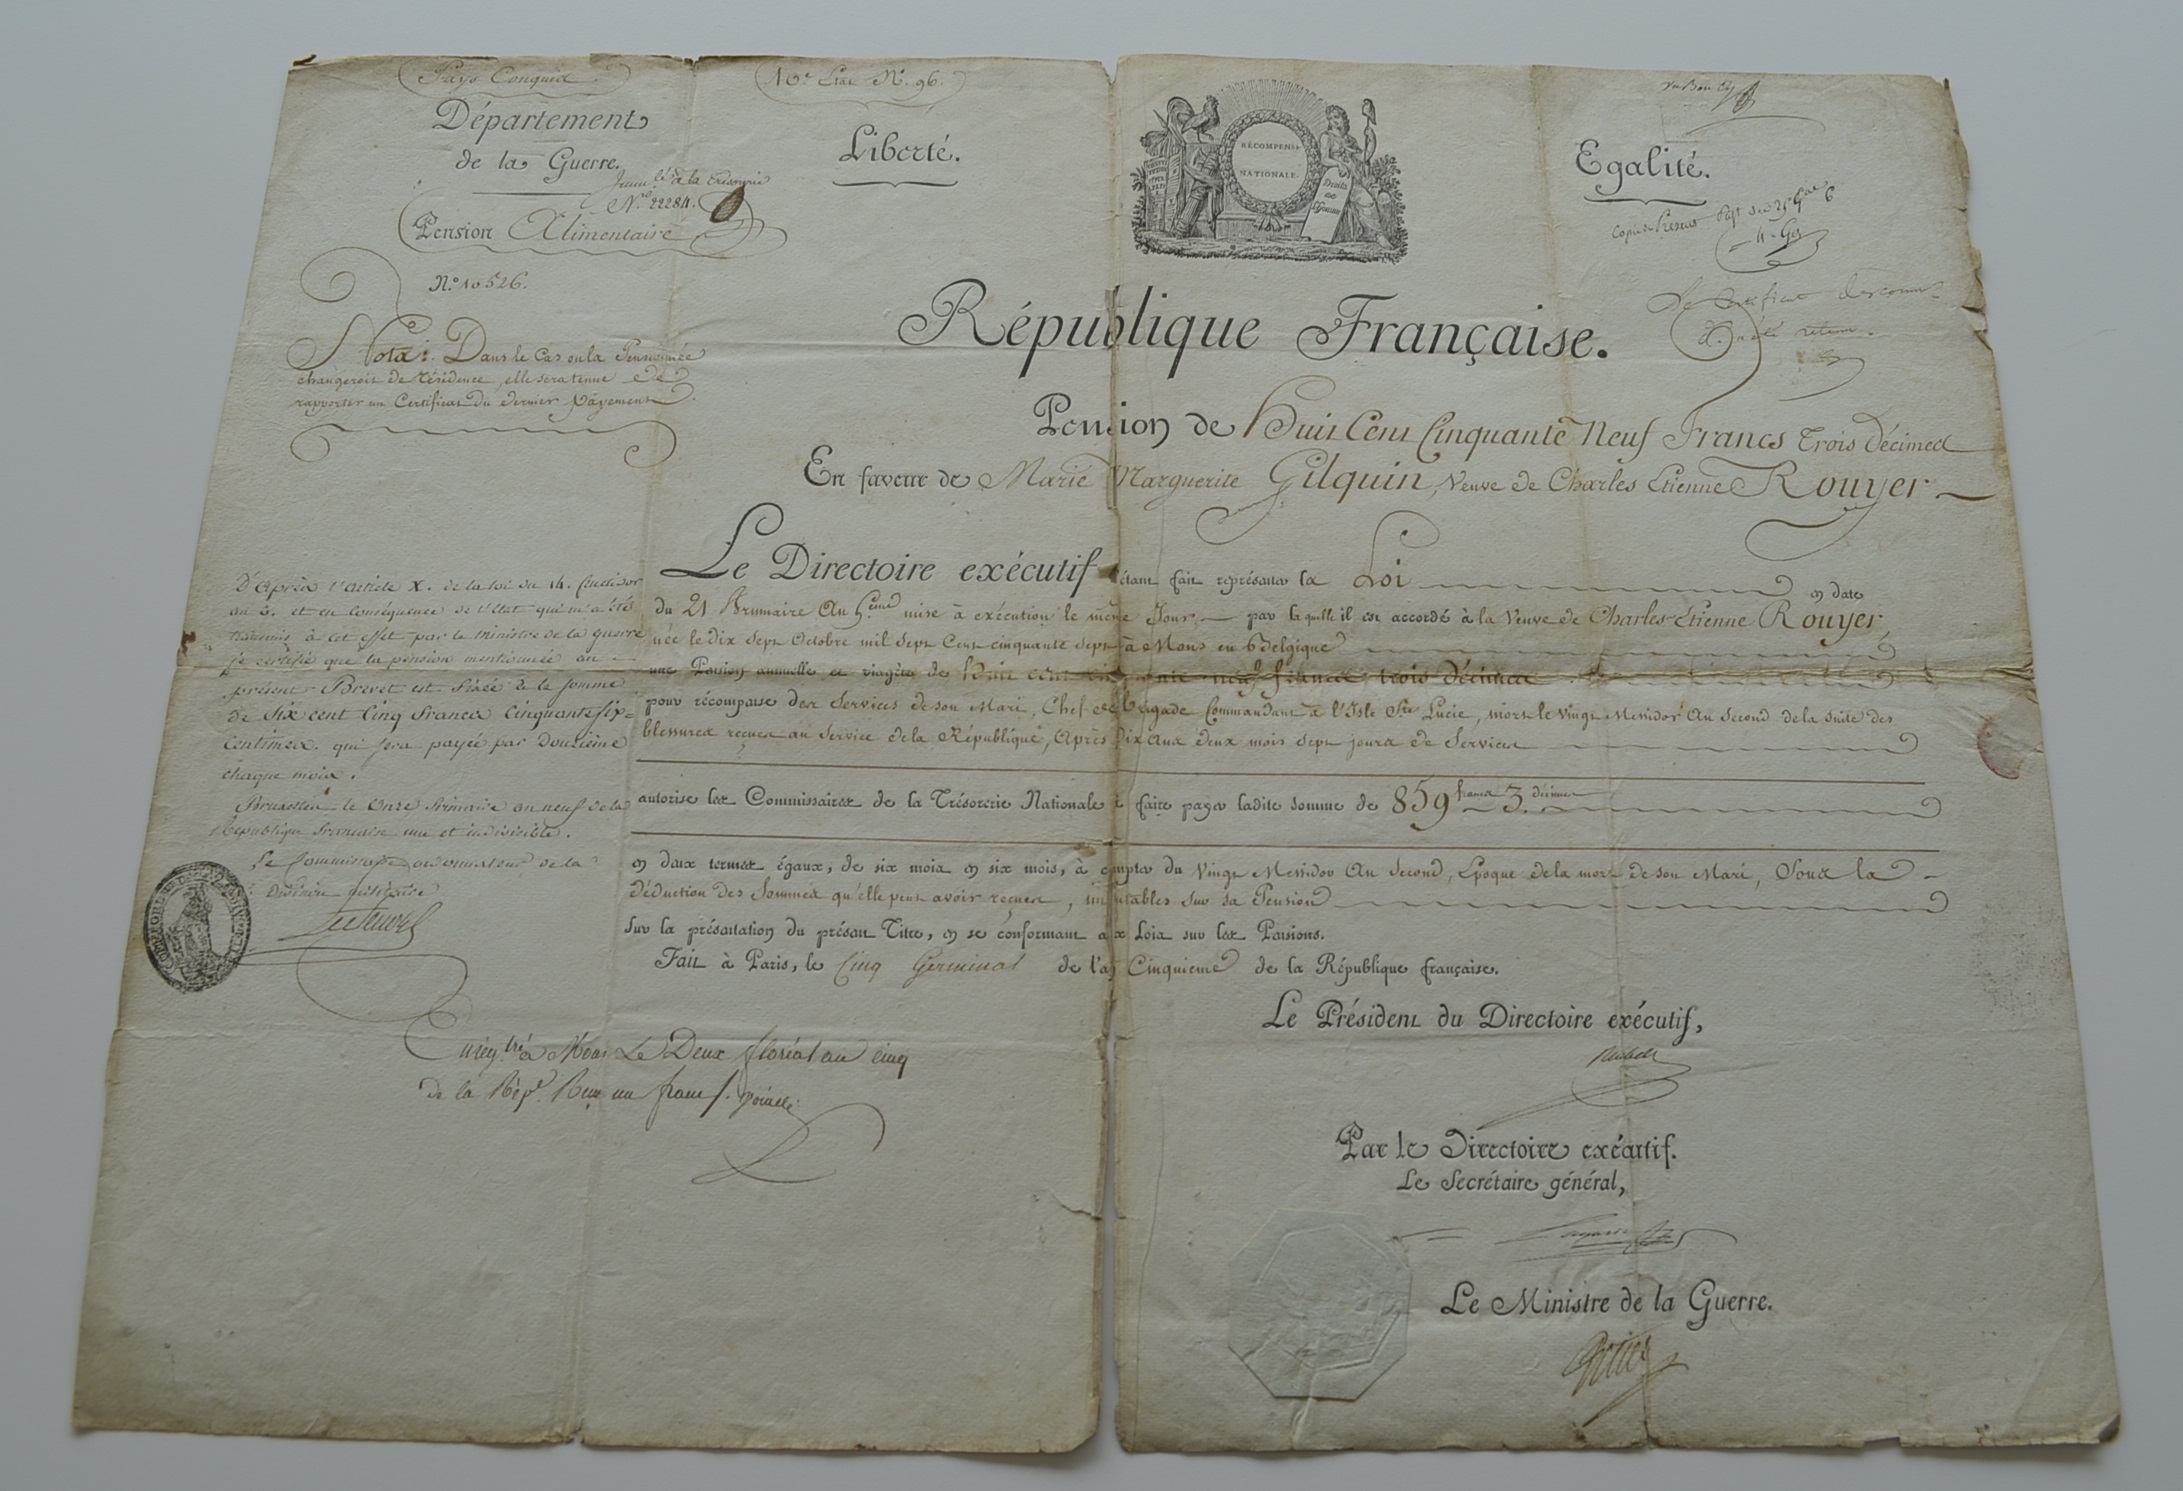 Pays Conquis
10e Etat No. 96.
Département
de la Guerre.
Liberté.
RÉCOMPENSE
NATIONALE.
Droits
de
l'homme
Egalité.
à la trésorerie
No. 22284.
Pension Alimentaire
N.o 10526.
République Française.
Nota: Dans le Cas ou la Pensionnée
changerois de résidence, elle sera tenue de
rapporter un Certificat du dernier payement
Pension de Huit Cent Cinquante Neuf Francs trois Décimes
En faveur de Marie Marguerite Gilquin, Veuve de Charles Etienne Rouyer
Le Directoire exécutif s'étant fait représenter la Loi en date
du 21 Brumaire An 5.eme mise à exécution le même Jour, par laquelle il est accordé à la Veuve de Charles Etienne Rouyer,
née le dix sept Octobre mil sept Cent cinquante sept à Mons en Belgique
une Pension annuelle et viagère de huit cent cinquante neuf francs trois décimes
pour récompense des Services de son Mari, Chef de brigade Commandant à l'Isle Ste Lucie, mort le Vingt Messidor An Second de la Suite des
blessures reçues au Service de la République, Après Dix Ans deux mois sept jours de Services
autorise les Commissaires de la Trésorerie Nationale à faire payer ladite somme de 859 francs 3. décimes
en deux termes égaux, de six mois en six mois, à compter du Vingt Messidor An Second, Epoque de la mort de son Mari, Sous la
déduction des Sommes qu'elle peut avoir reçues, imputables Sur sa Pension
sur la présentation du présent Titre, en se conformant aux Loix sur les Pensions.
Fait à Paris, le Cinq Germinal de l'an Cinquieme de la République française.
D'Après l'article X. de la loi du 14. fructidor
an 6. et en conséquence de l'état qui m'a été
transmis à cet effet par le ministre de la guerre
je certifie que la pension mentionnée au
présent Brevet est fixée à la somme
de Six cent Cinq francs Cinquante six
Centimes. qui sera payée par Douzième
chaque mois.
Bruxelles le Onze frimaire an neuf de la
République française une et indivisible.
Le Commissaire ordonnateur de la
Division militaire
Enregtré à Mons Le Deux floréal an cinq
de la Rép. Reçu un franc
Le Président du Directoire exécutif,
Par le Directoire exécutif.
Le Secrétaire général,
Lagarde
Le Ministre de la Guerre.
Petiet